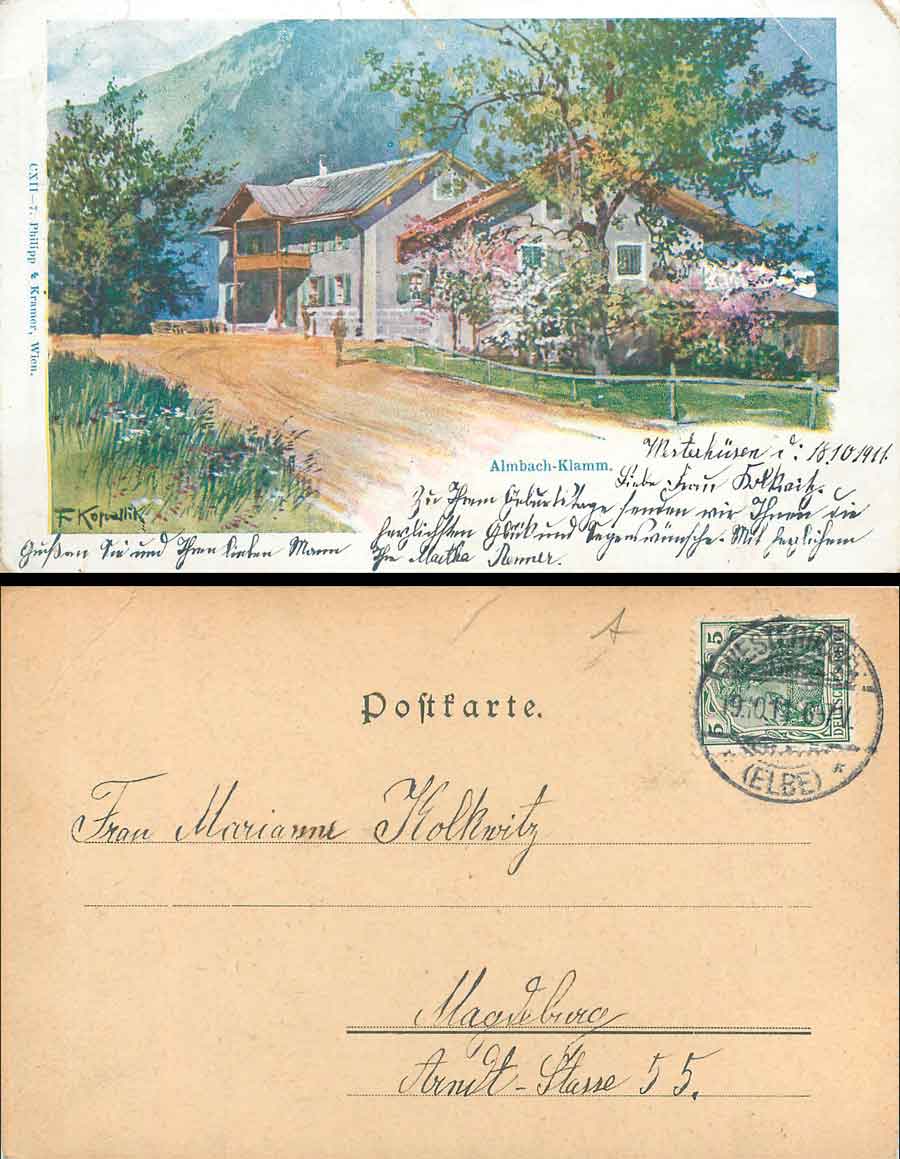 CXII–7. Philipp & Kramer, Wien.
F. Kopallik
Almbach-Klamm.
Westerhüsen d: 18.10.1911.
Liebe Frau Kolkwitz.
Zu Ihrem Geburtstage senden wir Ihnen die
herzlichsten Glück und Segenswünsche. Mit herzlichem
Grüßen Sie und Ihren lieben Mann
Ihre Martha Renner.
Postkarte.
5
5
DEUTSCHES REICH
19.10.11
(ELBE)
*
Frau Marianne Kolkwitz
Magdeburg
Arndt-Stasse 55.